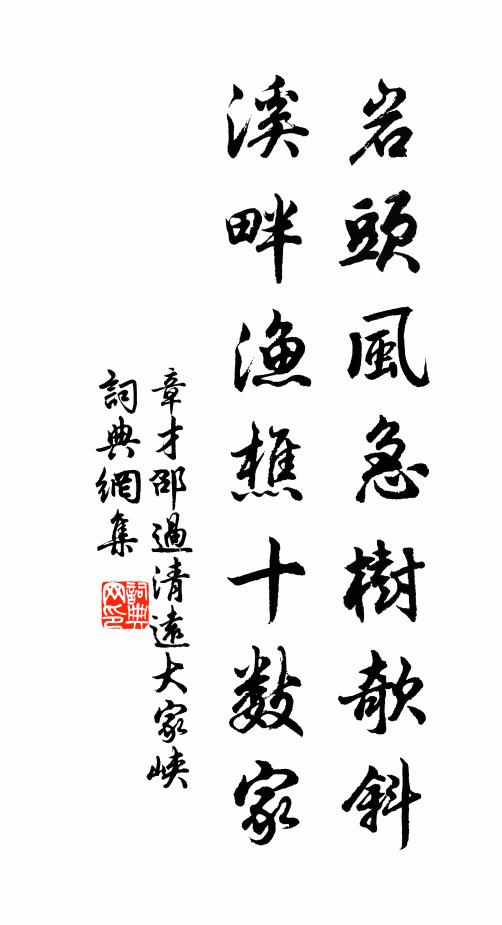 岩頭風急樹欹斜
溪畔漁樵十數家
章才邵過清遠大家峽
詞典網集
詞典網印